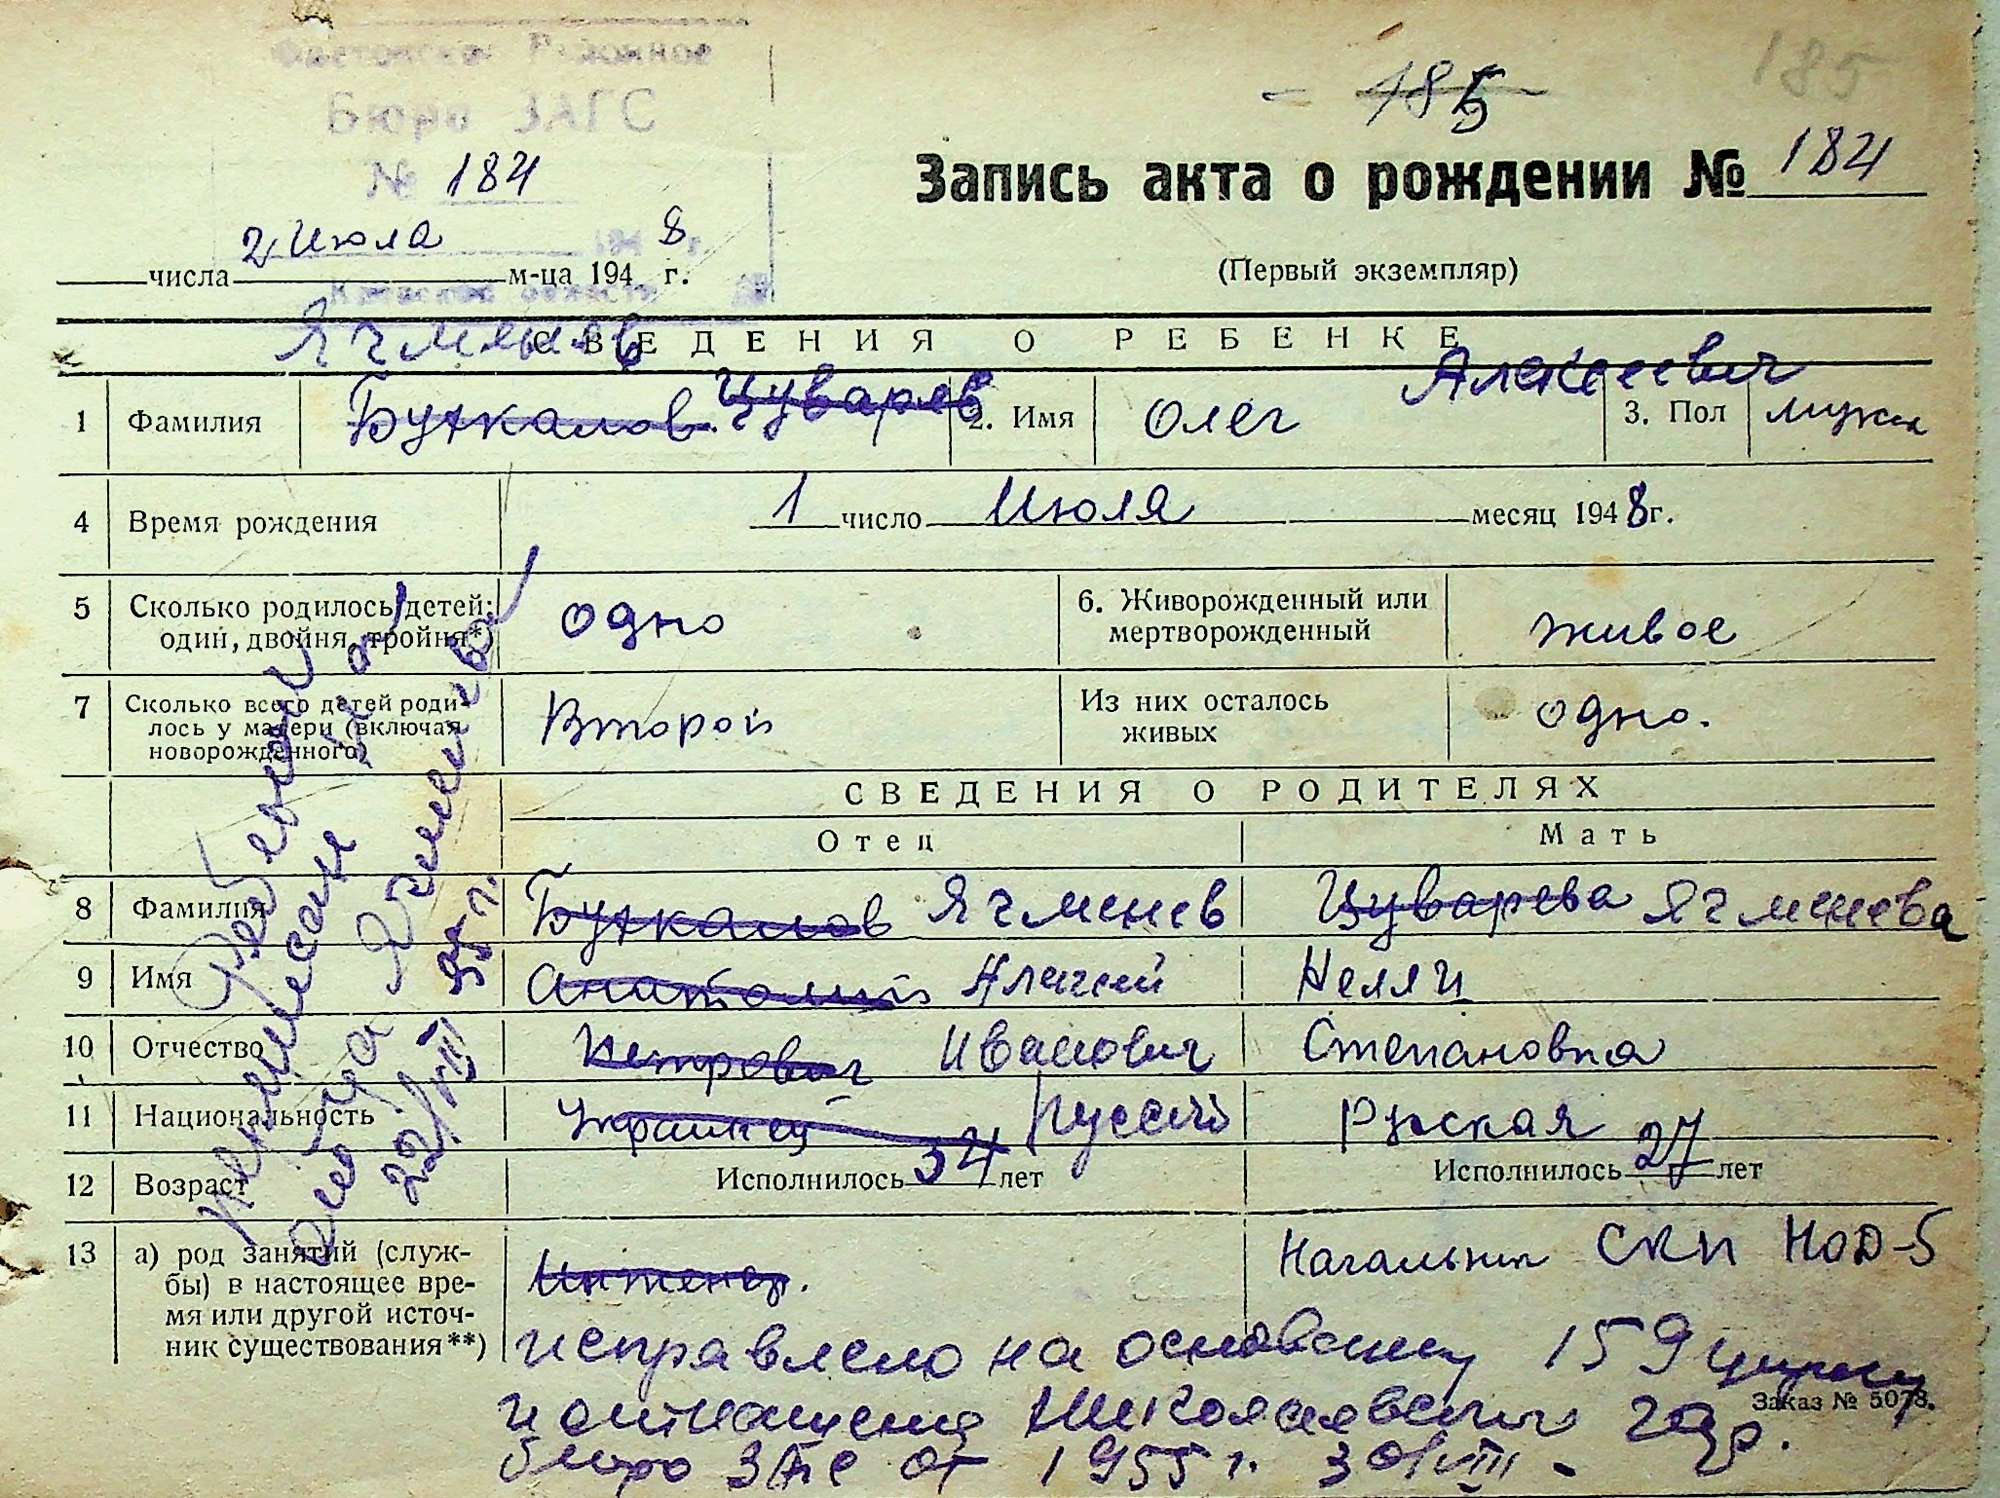 185
- 185 -
Районное
Бюро ЗАГС
№ 184
Запись акта о рождении № 184
2 Июля
числа м-ца 194 8 г.
(Первый экземпляр)
Киевской области
Ячменев
СВЕДЕНИЯ О РЕБЕНКЕ
Алексеевич
1 Фамилия Буткалов Цуварев 2. Имя Олег 3. Пол мужск
4 Время рождения 1 число Июля месяц 1948 г.
5 Сколько родилось детей: один, двойня, тройня*) одно 6. Живорожденный или мертворожденный живое
7 Сколько всего детей родилось у матери (включая новорожденного) Второй Из них осталось живых одно.
СВЕДЕНИЯ О РОДИТЕЛЯХ
Отец Мать
8 Фамилия Буткалов Ячменев Цуварева Ячменева
9 Имя Анатолий Алексей Нелли
10 Отчество Петрович Иванович Степановна
11 Национальность Украинец Русский Русская
12 Возраст Исполнилось 34 лет Исполнилось 27 лет
13 а) род занятий (службы) в настоящее время или другой источник существования**) Инженер. Начальник СКП НОД-5
исправлено на основании 159
и отношения Николаевский гор.
бюро ЗАГС от 1955 г. 30/VIII -
Заказ № 5078.
22/VIII 55 г.